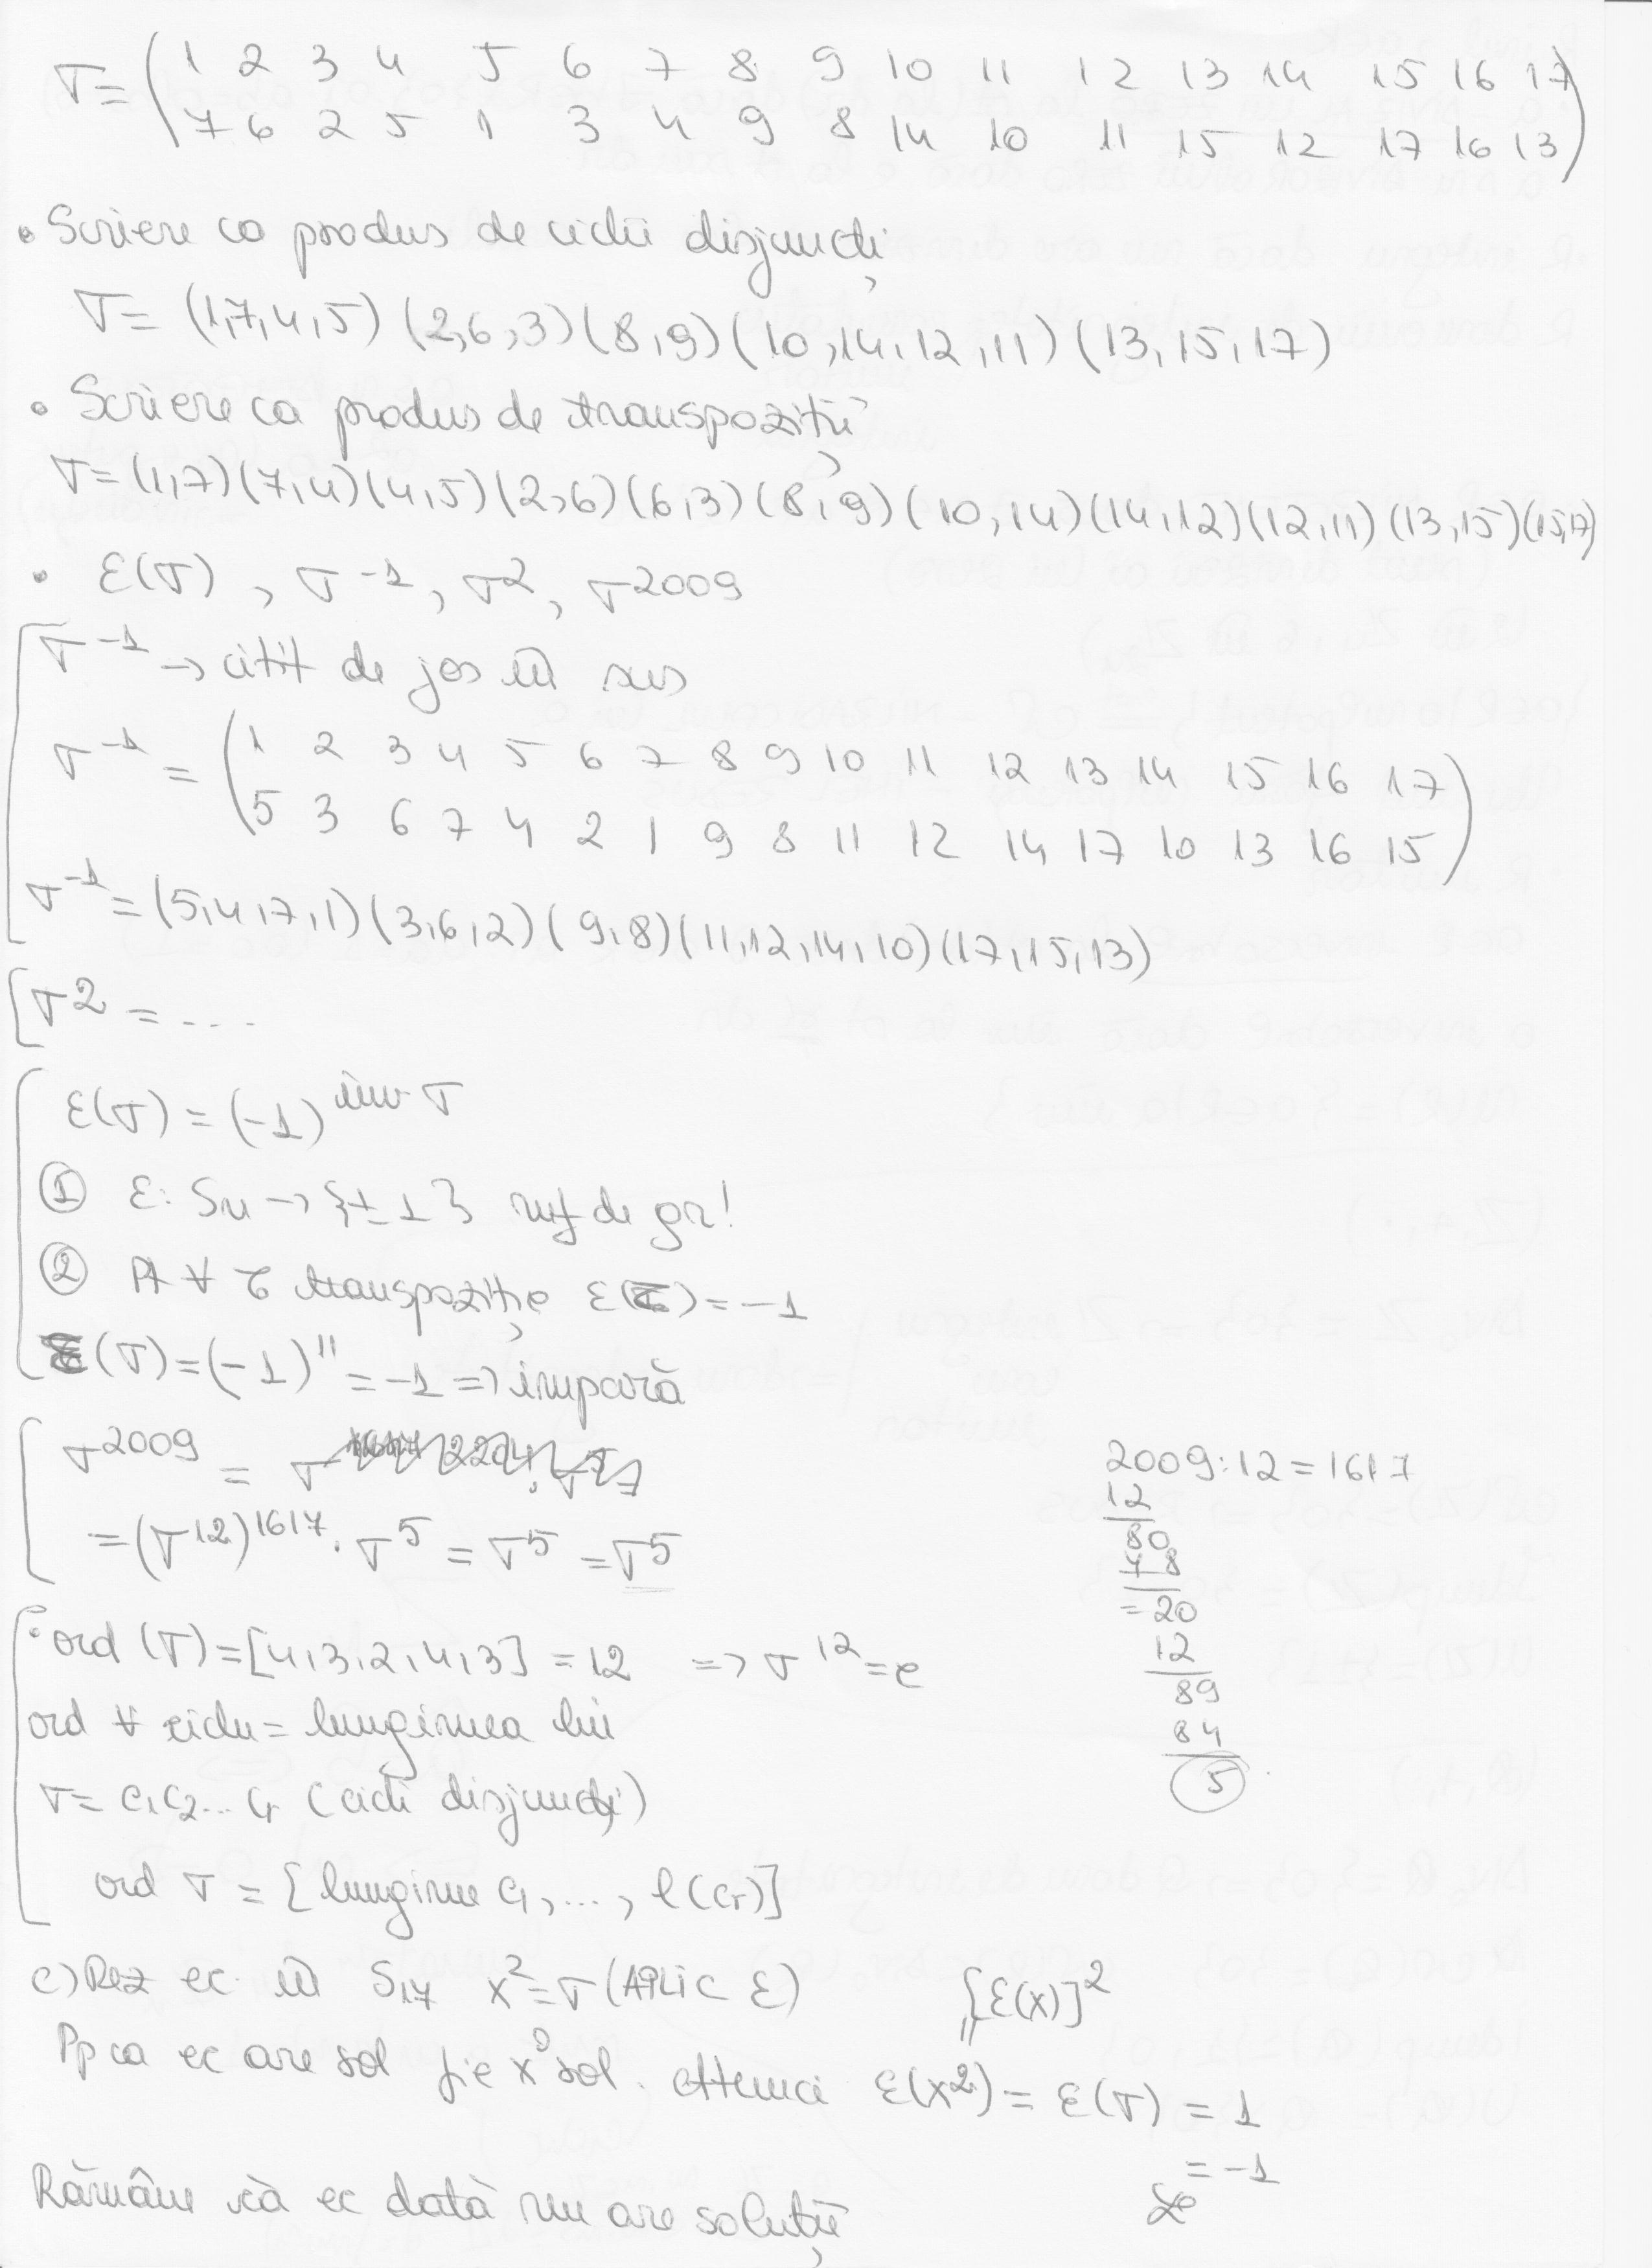 σ = ( 1 2 3 4 5 6 7 8 9 10 11 12 13 14 15 16 17
7 6 2 5 1 3 4 9 8 14 10 11 15 12 17 16 13 )
• Scriere ca produs de cicli disjuncți
σ = (1,7,4,5) (2,6,3) (8,9) (10,14,12,11) (13,15,17)
• Scriere ca produs de transpoziții
σ = (1,7)(7,4)(4,5)(2,6)(6,3)(8,9)(10,14)(14,12)(12,11)(13,15)(15,17)
• ε(σ), σ^-1, σ^2, σ^2009
σ^-1 → citit de jos în sus
σ^-1 = ( 1 2 3 4 5 6 7 8 9 10 11 12 13 14 15 16 17
5 3 6 7 4 2 1 9 8 11 12 14 17 10 13 16 15 )
σ^-1 = (5,4,7,1)(3,6,2)(9,8)(11,12,14,10)(17,15,13)
σ^2 = ....
ε(σ) = (-1)^inv σ
① ε: Sn → {±1} mf de gr!
② Pt ∀ τ transpoziție ε(τ) = -1
ε(σ) = (-1)^11 = -1 => impară
σ^2009 = σ
= (σ^12)^1617 · σ^5 = σ^5 = σ^5
2009:12 = 1617
12
80
78
=20
12
89
84
5
• ord (σ) = [4,3,2,4,3] = 12 => σ^12 = e
ord ∀ ciclu = lungimea lui
σ = c1c2...cr (cicli disjuncți)
ord σ = [lungime c1, ..., l(cr)]
c) Rez ec. în S17 x^2 = σ (APLIC ε)
[ε(x)]^2
"
Pp ca ec are sol fie x^0 sol. Atunci ε(x^2) = ε(σ) = 1
= -1
Rămâne că ec dată nu are soluții